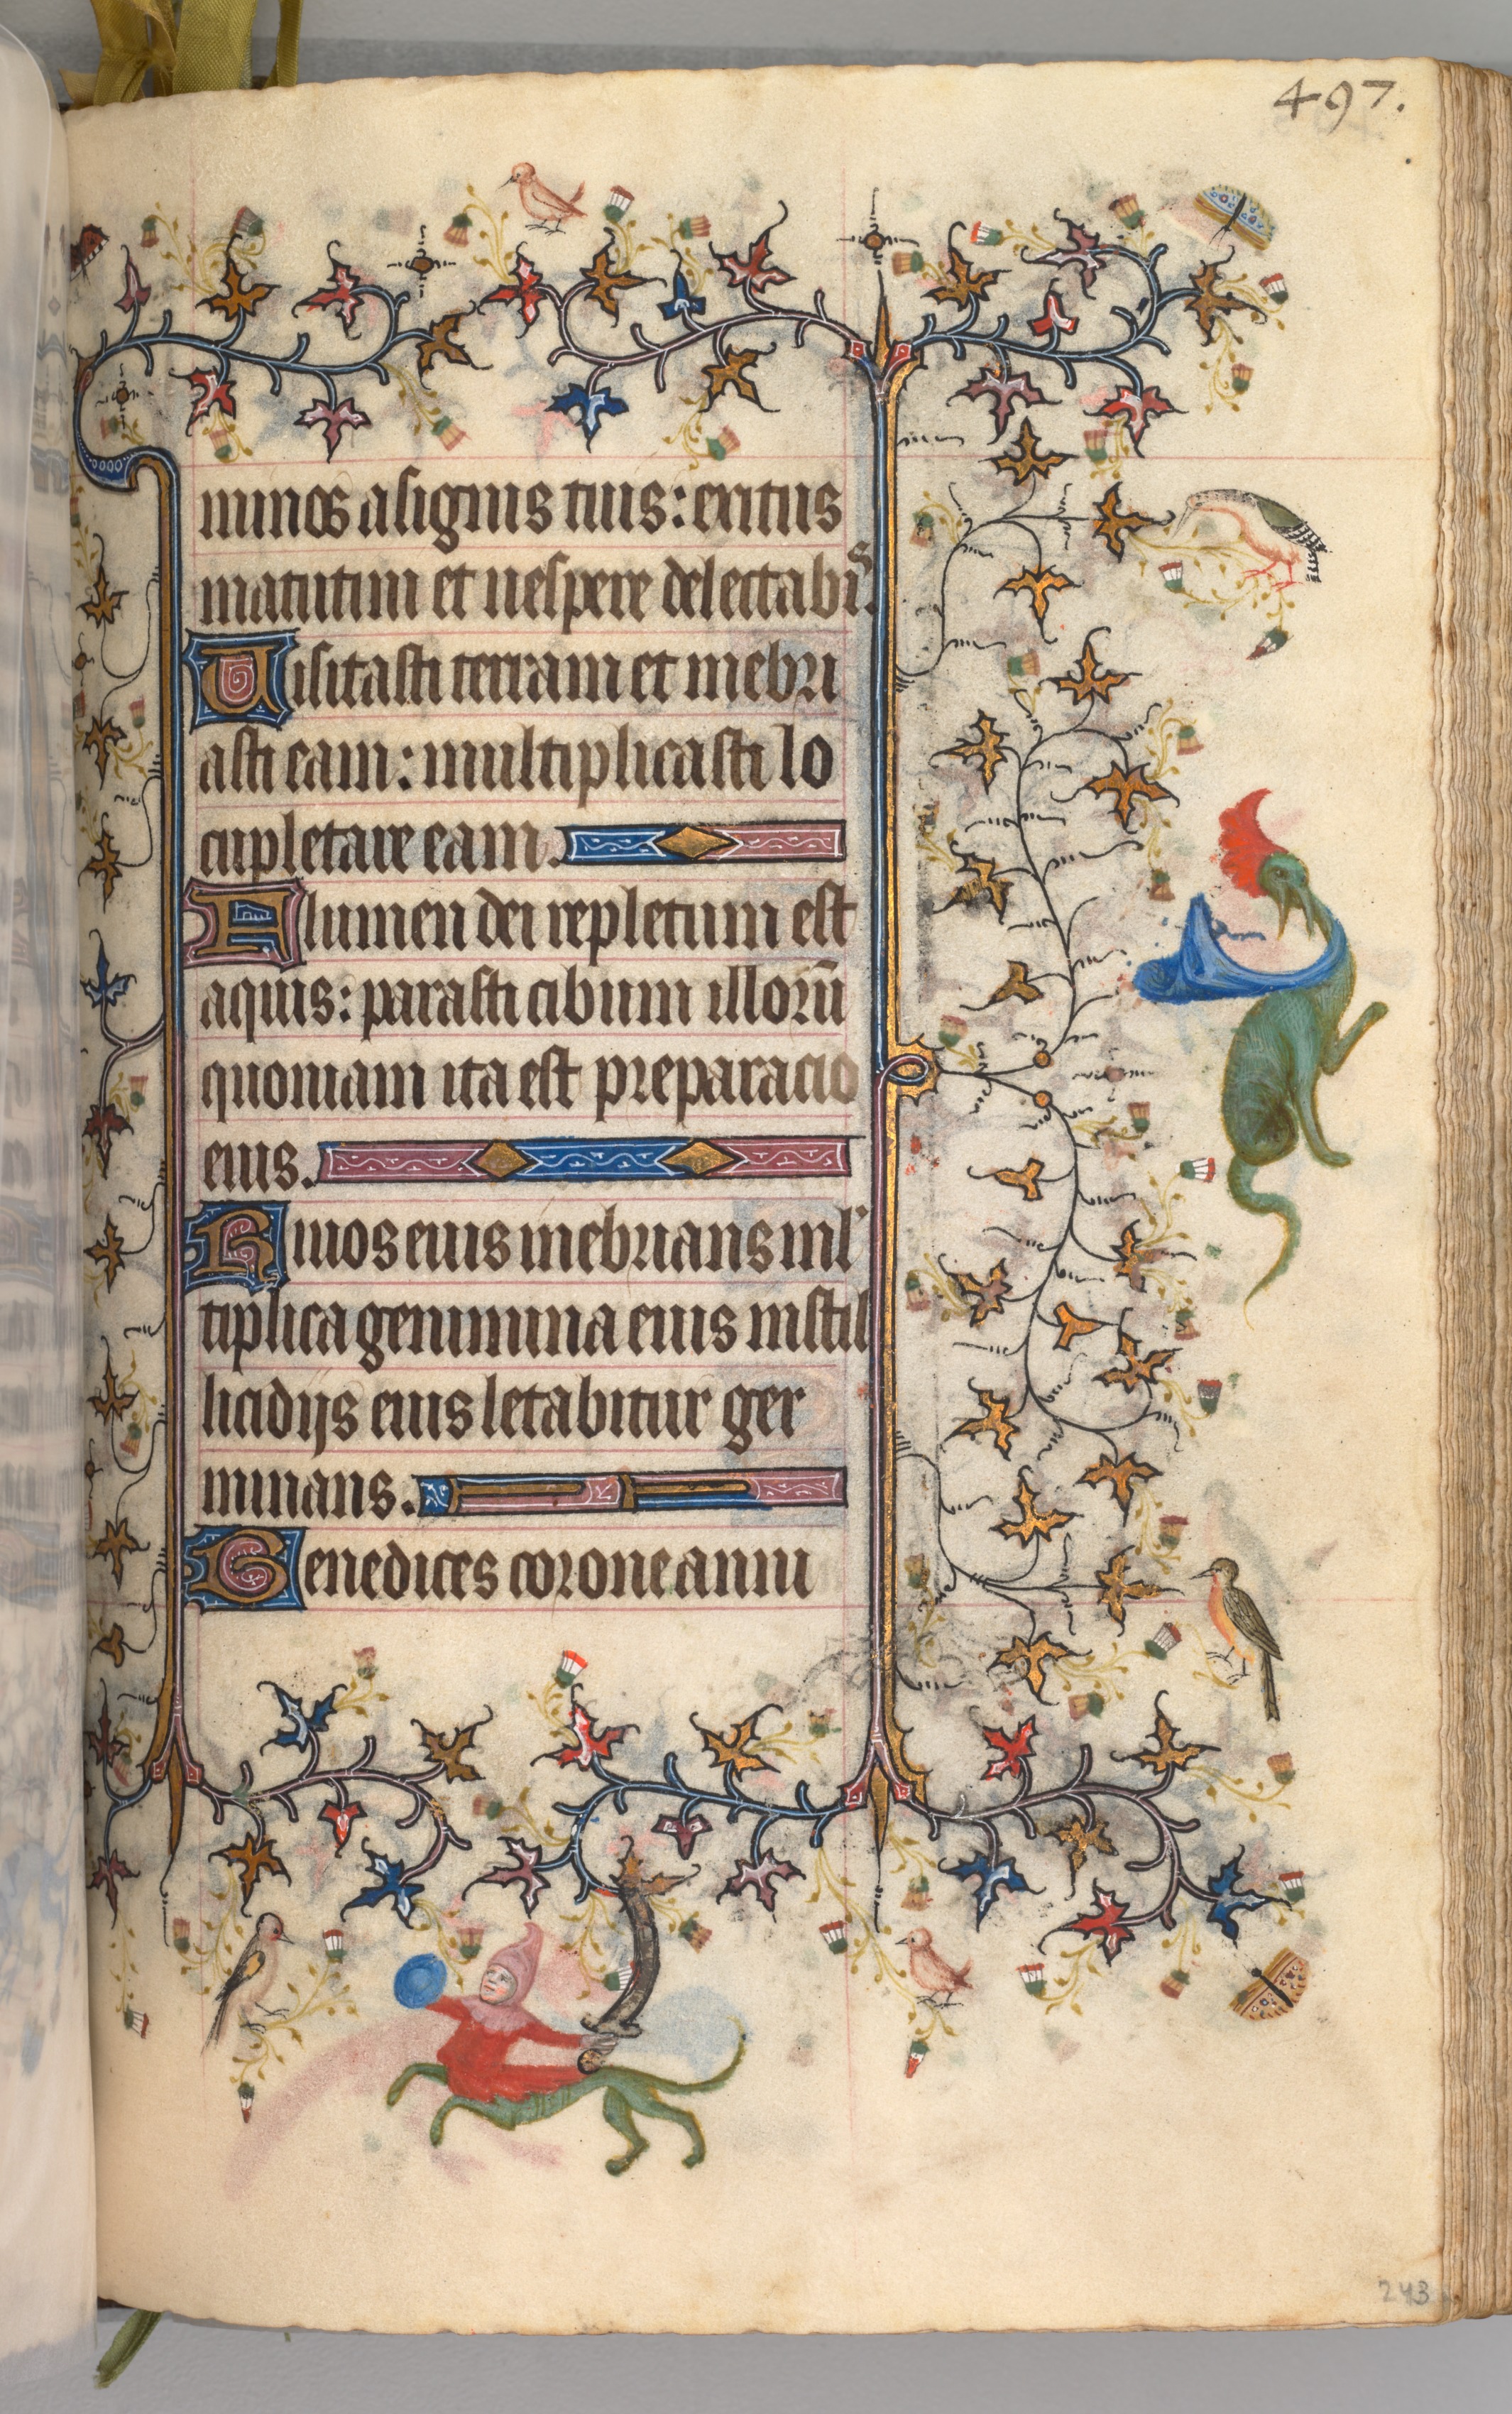 497.
minos a signis tuis: exitus
matutini et uespere delectabis.
Uisitasti terram et inebri
asti eam: multiplicasti lo
cupletare eam.
Flumen dei repletum est
aquis: parasti cibum illorū
quoniam ita est preparacio
eius.
Riuos eius inebrians ml'
tiplica genimina eius in stil
licidijs eius letabitur ger
minans.
Benedices corone anni
243